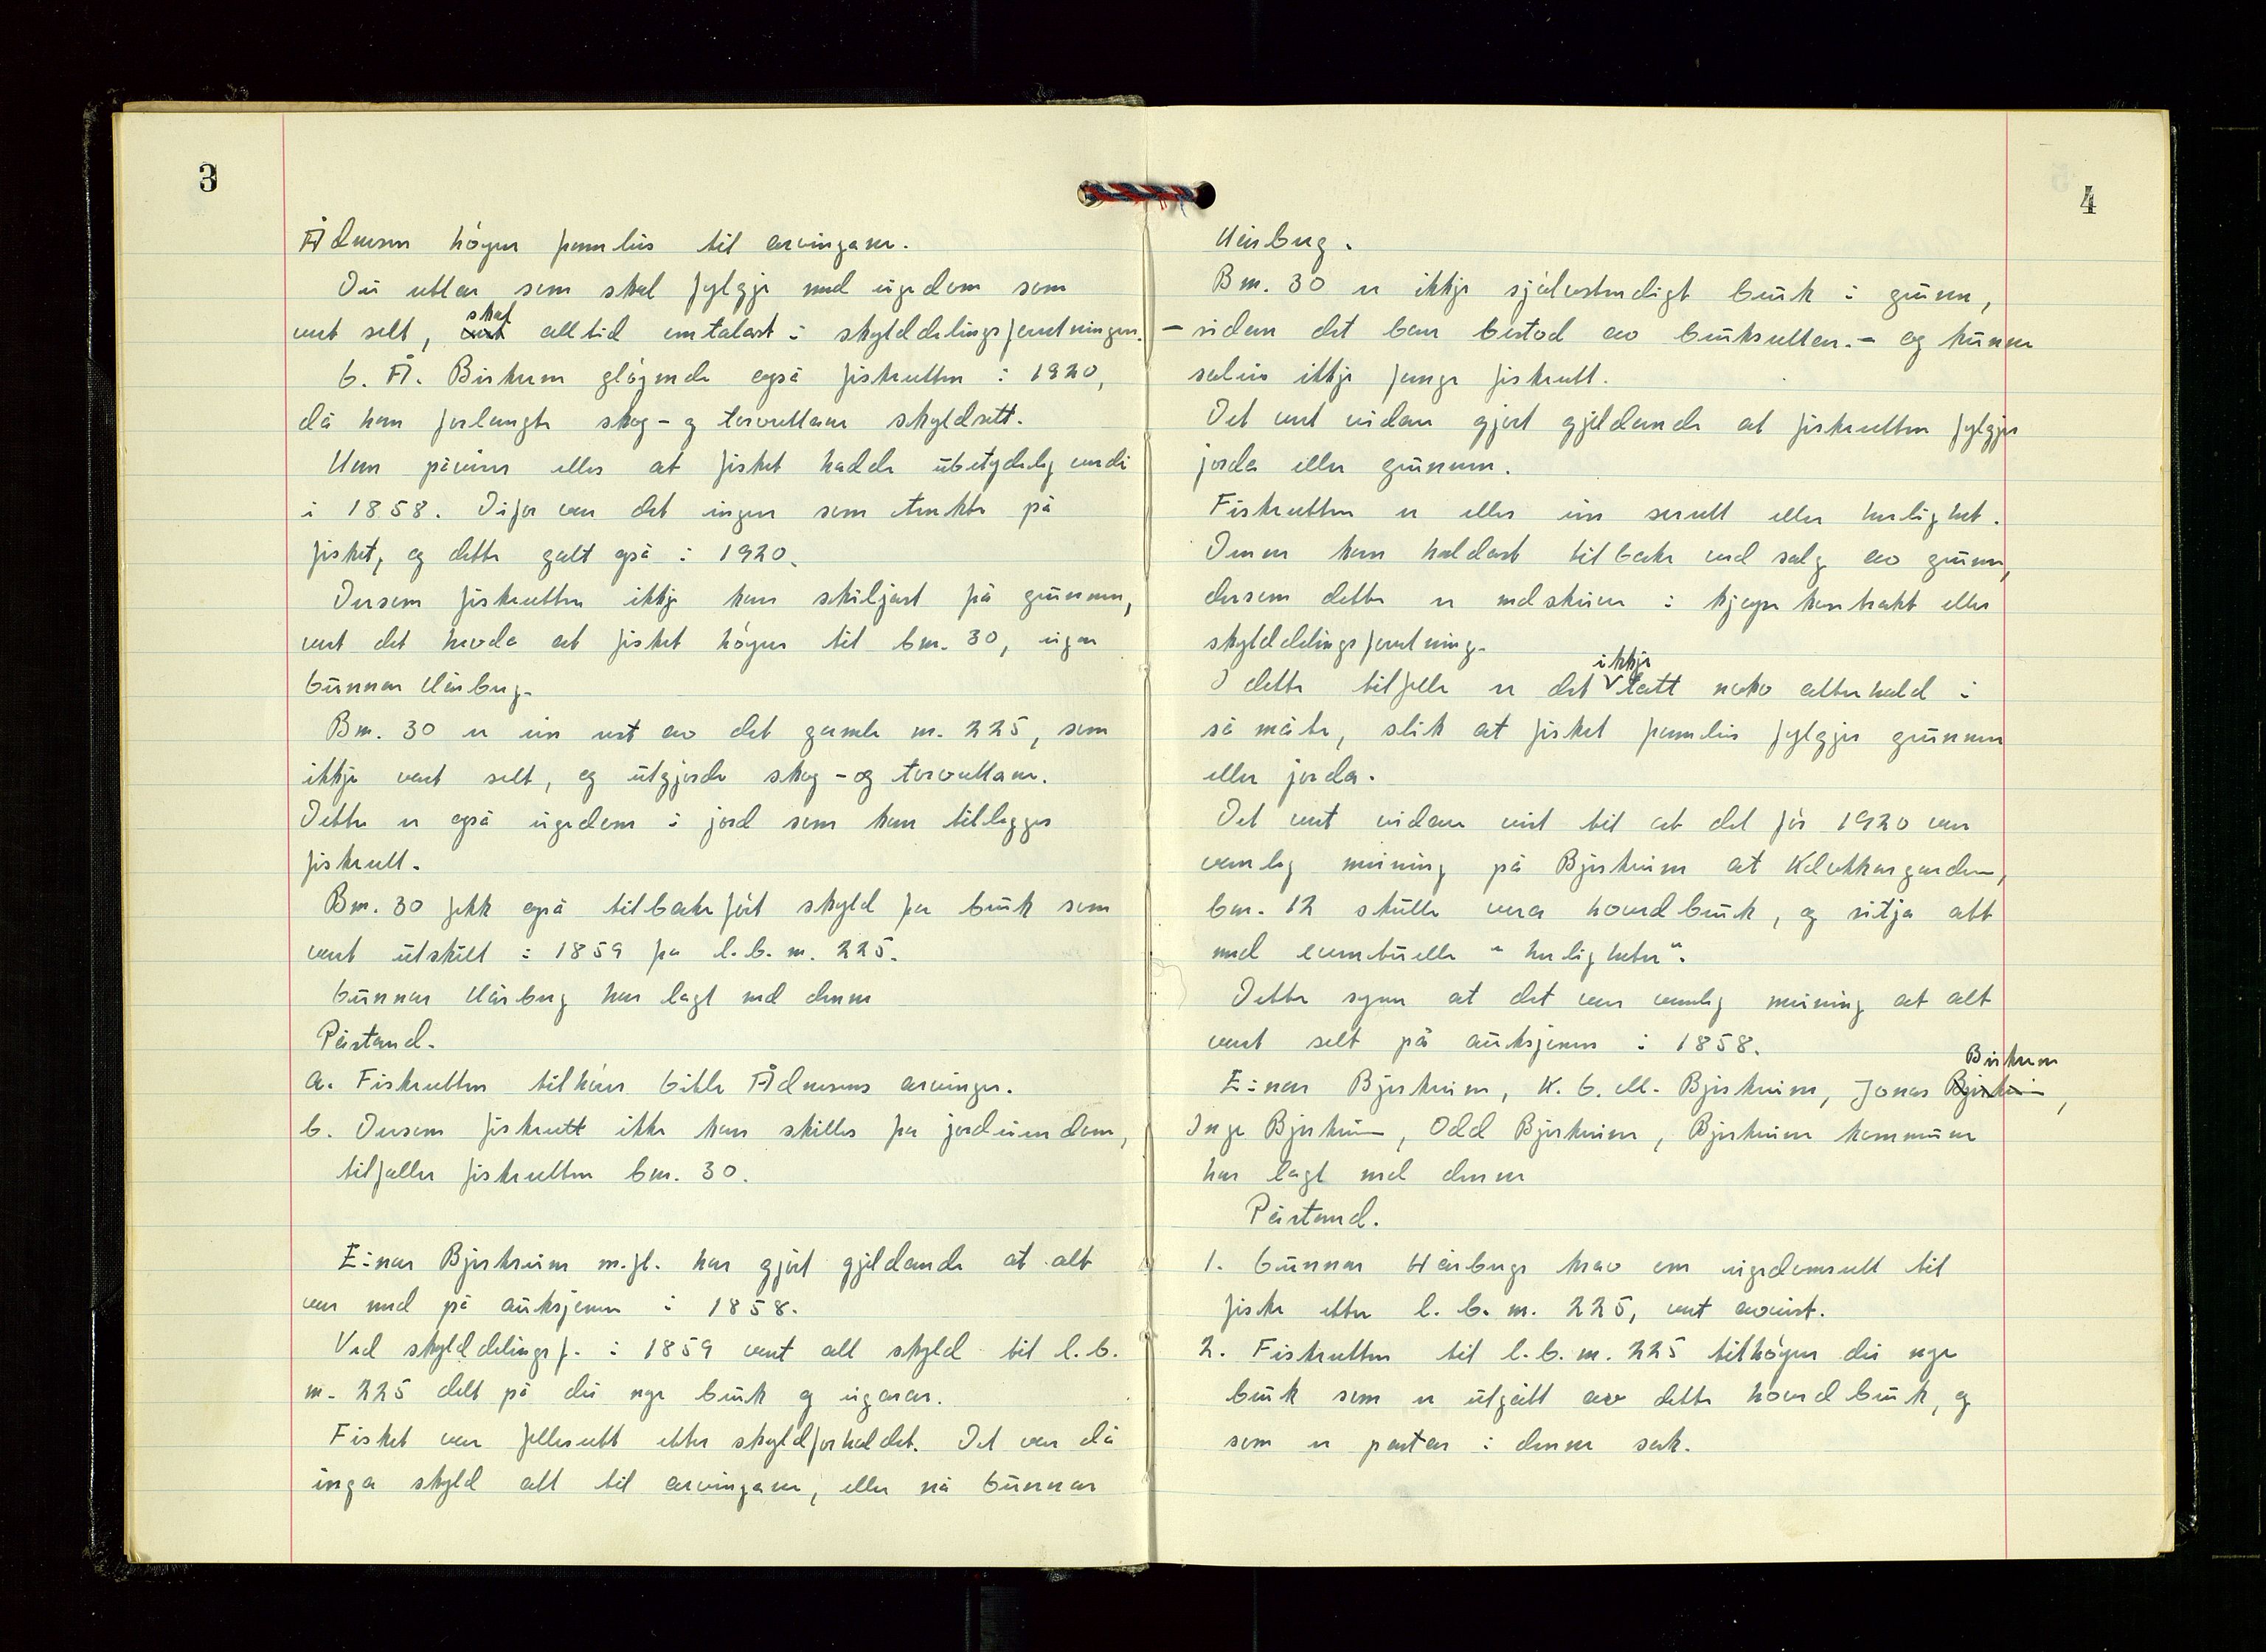 3
Ådnesen høyrer framleis til arvingane.
Dei rettar som skal fylgja med eigedom som
vert selt, skal alltid omtalast i skylddelingsforretningen.
G. Å. Birkrem gløymde også fiskeretten i 1920,
då han forlangte skog- og torvrettane skyldsett.
Han påviser elles at fisket hadde ubetydeleg verdi
i 1858. Difor var det ingen som tenkte på
fisket, og dette galt også i 1920.
Dersom fiskeretten ikkje kan skiljast frå grunnen,
vert det hevda at fisket høyrer til bnr. 30, eigar
Gunnar Hårberg.
Bnr. 30 er ein rest av det gamle nr. 225, som
ikkje vart selt, og utgjorde skog- og torvrettane.
Dette er også eigedom i jord som kan tilleggjes
fiskerett.
Bnr. 30 fekk også tilbakeført skyld fra bruk som
vart utskilt i 1859 fra l.b.nr. 225.
Gunnar Hårberg har lagt ned denne
Påstand.
a. Fiskeretten tilhører Gitle Ådnesens arvinger.
b. Dersom fiskerett ikke kan skilles fra jordeiendom,
tilfaller fiskeretten bnr. 30.
Einar Bjerkreim m.fl. har gjort gjeldande at alt
var med på auksjonen i 1858.
Ved skylddelingsf. i 1859 vart all skyld til l.b.
nr. 225 delt på dei nye bruk og eigarar.
Fisket var fellesrett etter skyldforholdet. Det var då
inga skyld att til arvingane, eller nå Gunnar
4
Hårberg.
Bnr. 30 er ikkje sjølvstendigt bruk i grunn,
- sidan det bare bestod av bruksrettar. - og kunne
såleis ikkje fange fiskerett.
Det vert vidare gjort gjeldande at fiskeretten fylgjer
jorda eller grunnen.
Fiskeretten er elles ein serrett eller herlighet.
Denne kan haldast tilbake ved salg av grunn,
dersom dette er nedskrive i kjøpekontrakt eller
skylddelingsforretning.
I dette tilfelle er det ikkje tatt noko atterhald i
så måte, slik at fisket framleis fylgjer grunnen
eller jorda.
Det vert vidare vist til at det før 1920 var
vanleg meining på Bjerkreim at Klokkargarden,
bnr. 12 skulle vera hovudbruk, og sitja att
med eventuelle "herligheter".
Dette syner at det var vanleg meining at alt
vart selt på auksjonen i 1858.
Einar Bjerkreim, K. G. M. Bjerkreim, Jonas Birkrem,
Inge Bjerkreim, Odd Bjerkreim, Bjerkreim kommune
har lagt ned denne
Påstand.
1. Gunnar Hårbergs krav om eigedomsrett til
fiske etter l. b. nr. 225, vert avvist.
2. Fiskeretten til l.b.nr. 225 tilhøyrer dei nye
bruk som er utgått av dette hovudbruk, og
som er partar i denne sak.